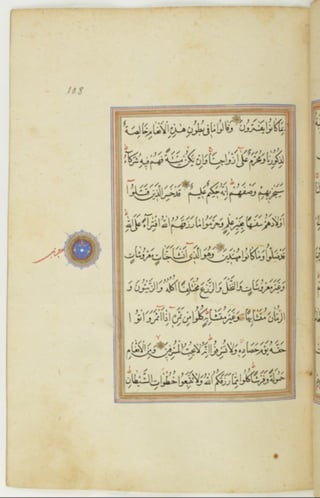 108
بما كانوا يفترون وقالوا ما في بطون هذه الأنعام خالصة
لذكورنا ومحرم على أزواجنا وإن يكن ميتة فهم فيه شركاء
سيجزيهم وصفهم إنه حكيم عليم قد خسر الذين قتلوا
أولادهم سفها بغير علم وحرموا ما رزقهم الله افتراء على الله
قد ضلوا وما كانوا مهتدين وهو الذي أنشأ جنات معروشات
وغير معروشات والنخل والزرع مختلفا أكله والزيتون و
الرمان متشابها وغير متشابه كلوا من ثمره إذا أثمر وآتوا
حقه يوم حصاده ولا تسرفوا إنه لا يحب المسرفين ومن الأنعام
حمولة وفرشا كلوا مما رزقكم الله ولا تتبعوا خطوات الشيطان